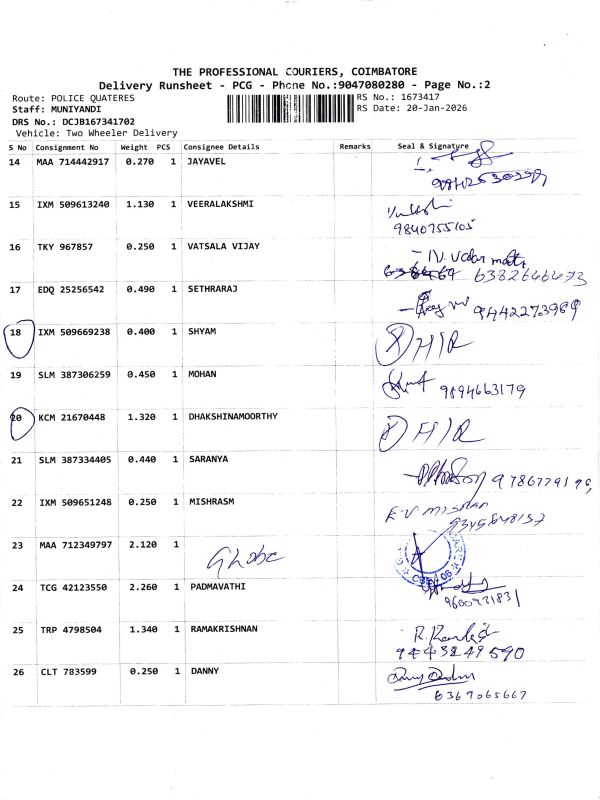 THE PROFESSIONAL COURIERS, COIMBATORE
Delivery Runsheet - PCG - Phone No.:9047080280 - Page No.:2
Route: POLICE QUATERES
RS No.: 1673417
Staff: MUNIYANDI
RS Date: 20-Jan-2026
DRS No.: DCJB167341702
Vehicle: Two Wheeler Delivery
S No Consignment No Weight PCS Consignee Details Remarks Seal & Signature
14 MAA 714442917 0.270 1 JAYAVEL
15 IXM 509613240 1.130 1 VEERALAKSHMI
9840755105
16 TKY 967857 0.250 1 VATSALA VIJAY
6382646473
17 EDQ 25256542 0.490 1 SETHRARAJ
9442273989
18 IXM 509669238 0.400 1 SHYAM
H/R
19 SLM 387306259 0.450 1 MOHAN
9894663179
20 KCM 21670448 1.320 1 DHAKSHINAMOORTHY
H/R
21 SLM 387334405 0.440 1 SARANYA
22 IXM 509651248 0.250 1 MISHRASM
23 MAA 712349797 2.120 1
24 TCG 42123550 2.260 1 PADMAVATHI
25 TRP 4798504 1.340 1 RAMAKRISHNAN
9443249590
26 CLT 783599 0.250 1 DANNY
6369065667